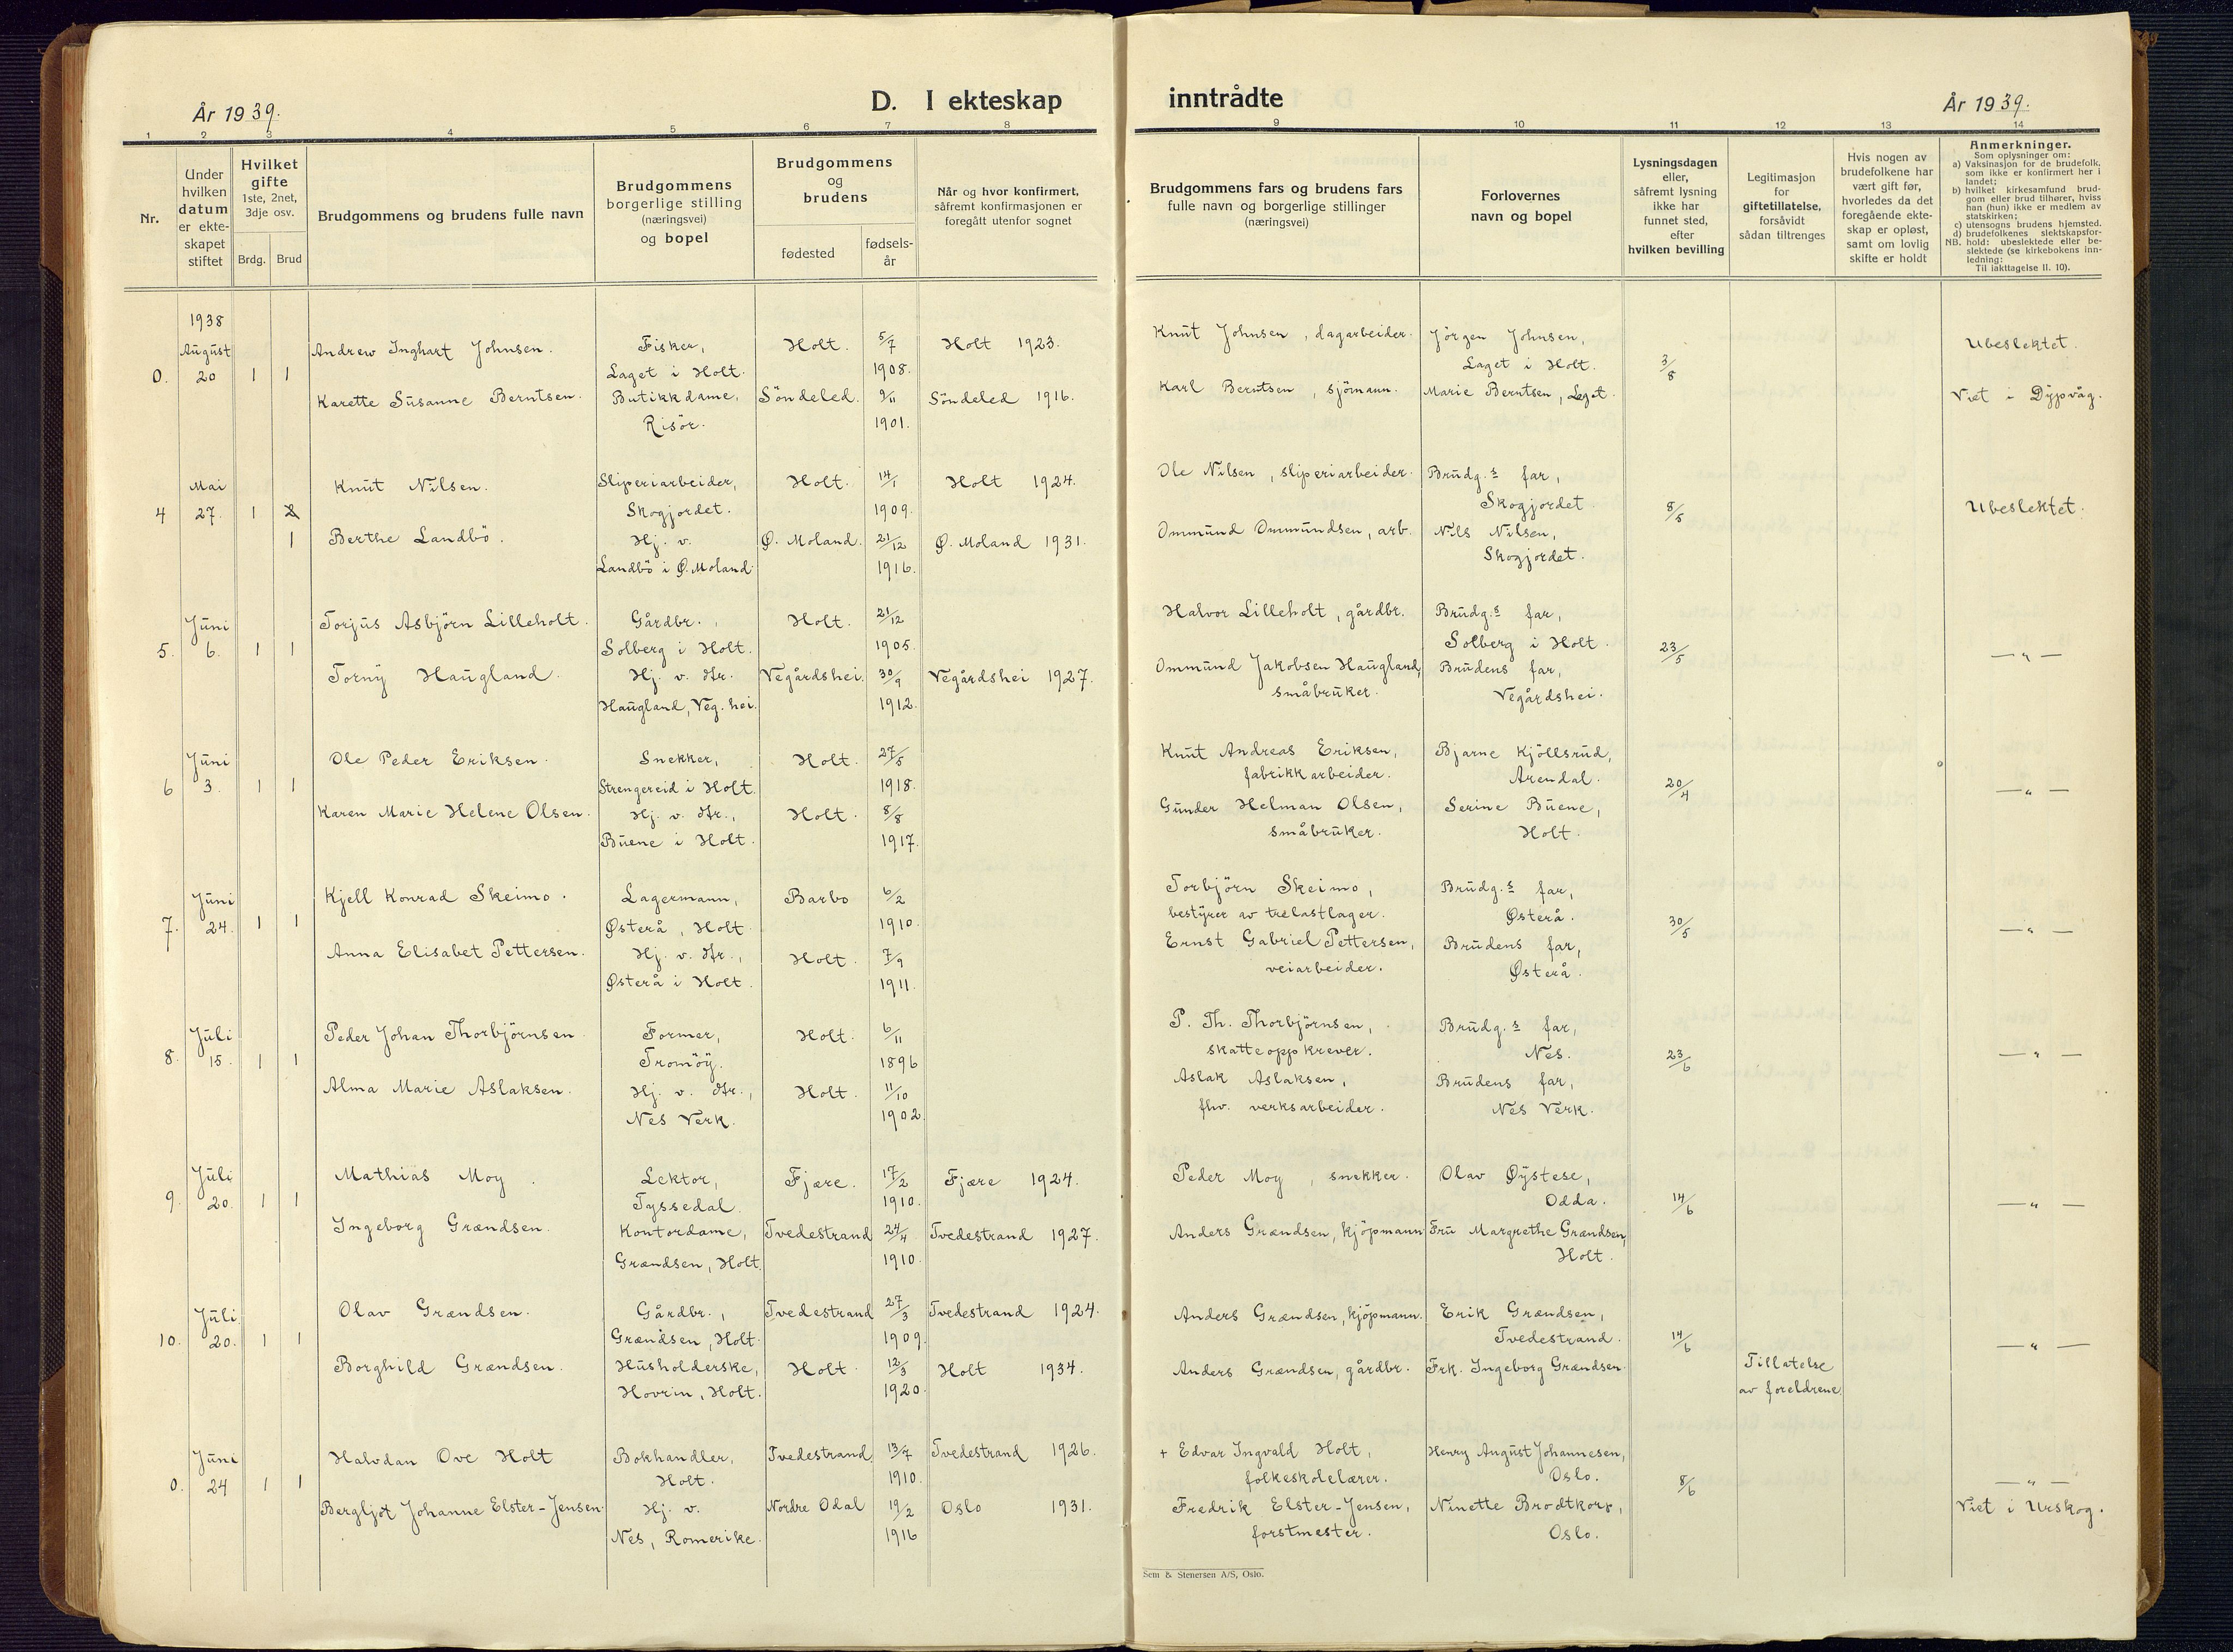 År 1939.
D. I ekteskap
inntrådte
År 1939.
1 2 3 4 5 6 7 8 9 10 11 12 13 14
Nr.
Under
hvilken
datum
er ekte-
skapet
stiftet
Hvilket
gifte
1ste, 2net,
3dje osv.
Brdg. Brud
Brudgommens og brudens fulle navn
Brudgommens
borgerlige stilling
(næringsvei)
og bopel
Brudgommens
og
brudens
fødested
fødsels-
år
Når og hvor konfirmert,
såfremt konfirmasjonen er
foregått utenfor sognet
Brudgommens fars og brudens fars
fulle navn og borgerlige stillinger
(næringsvei)
Forlovernes
navn og bopel
Lysningsdagen
eller,
såfremt lysning
ikke har
funnet sted,
efter
hvilken bevilling
Legitimasjon
for
giftetillatelse,
forsåvidt
sådan tiltrenges
Hvis nogen av
brudefolkene har
vært gift før,
hvorledes da det
foregående ekte-
skap er opløst,
samt om lovlig
skifte er holdt
Anmerkninger.
Som oplysninger om:
a) Vaksinasjon for de brudefolk,
som ikke er konfirmert her i
landet;
b) hvilket kirkesamfund brud-
gom eller brud tilhører, hviss
han (hun) ikke er medlem av
statskirken;
c) utensogns brudens hjemsted.
d) brudefolkenes slektskapsfor-
NB. hold: ubeslektede eller be-
slektede (se kirkebokens inn-
ledning:
Til iakttagelse II. 10).
1938
August Andrew Inghart Johnsen. Fisker, Holt. 5/7 Holt 1923. Knut Johnsen, dagarbeider. Jörgen Johnsen, Ubeslektet.
0. 20 1 1 Laget i Holt. 1908. Laget i Holt. 3/8
Karette Susanne Berntsen. Butikkdame, Söndeled. 9/11 Söndeled 1916. Karl Berntsen, sjömann. Marie Berntsen, Laget. Viet i Dypvåg.
Risör. 1901.
Mai Knut Nilsen. Sliperiarbeider, Holt. 14/1 Holt 1924. Ole Nilsen, sliperiarbeider. Brudg.s far,
4 27. 1 2 Skogjordet. 1909. Skogjordet. 8/5 Ubeslektet.
1 Berthe Landbö. Hj. v. Ø. Moland. 21/12 Ø. Moland 1931. Ommund Ommundsen, arb. Nils Nilsen,
Landbö i Ø. Moland. 1916. Skogjordet.
Juni Torjus Asbjörn Lilleholt. Gårdbr., Holt. 21/12 Halvor Lilleholt, gårdbr. Brudg.s far,
5. 6. 1 1 Solberg i Holt. 1905. Solberg i Holt. 23/5 — " —
Torny Haugland. Hj. v. str. Vegårdshei. 30/9 Vegårdshei 1927. Ommund Jakobsen Haugland, Brudens far,
Haugland, Veg. hei. 1912. småbruker. Vegårdshei.
Juni Ole Peder Eriksen. Snekker, Holt. 27/5 Knut Andreas Eriksen, Bjarne Kjöllsrud,
6 3. 1 1 Strengereid i Holt. 1918. fabrikkarbeider. Arendal. 20/4 — " —
Karen Marie Helene Olsen. Hj. v. str., Holt. 8/8 Gunder Helman Olsen, Serine Buene,
Buene i Holt. 1917. småbruker. Holt.
Juni Kjell Konrad Skeimo. Lagermann, Barbo 6/2 Torbjörn Skeimo, Brudg.s far,
7. 24. 1 1 Østerå, Holt 1910. bestyrer av trelastlager. Østerå. 30/5 — " —
Anna Elisabet Pettersen. Hj. v. str., Holt. 7/9 Ernst Gabriel Pettersen, Brudens far,
Østerå i Holt. 1911. veiarbeider. Østerå.
Juli Peder Johan Thorbjörnsen Former, Holt. 6/11 P. Th. Thorbjörnsen, Brudg.s far,
8. 15. 1 1 Tromöy. 1896 skatteoppkrever. Nes. 23/6 — " —
Alma Marie Aslaksen. Hj. v. str., Holt. 11/10 Aslak Aslaksen, Brudens far,
Nes Verk. 1902. fhv. verksarbeider. Nes Verk.
Juli Mathias Moy. Lektor, Fjære. 17/2 Fjære 1924. Peder Moy, snekker. Olav Öystese,
9. 20. 1 1 Tyssedal. 1910. Odda. 14/6 — " —
Ingeborg Grændsen. Kontordame, Tvedestrand 24/4 Tvedestrand 1927. Anders Grændsen, kjöpmann Fru Margrethe Grændsen,
Grændsen, Holt. 1910. Holt.
Juli Olav Grændsen. Gårdbr., Tvedestrand 27/3 Tvedestrand 1924. Anders Grændsen, kjöpmann. Erik Grændsen,
10. 20. 1 1 Grændsen, Holt. 1909. Tvedestrand. 14/6 — " —
Borghild Grændsen. Husholderske, Holt. 12/3 Holt 1934. Anders Grændsen, gårdbr. Frk. Ingeborg Grændsen. Tillatelse
Hovrin, Holt. 1920. av foreldrene
Juni Halvdan Ove Holt Bokhandler, Tvedestrand 13/7 Tvedestrand 1926. + Edvar Ingvald Holt, Henry August Johannesen,
0. 24 1 1 Holt. 1910. folkeskolelærer. Oslo. 8/6 — " —
Bergljot Johanne Elster-Jensen. Hj. v. Nordre Odal 19/2 Oslo 1931. Fredrik Elster-Jensen, Ninette Brodtkorp, Viet i Urskog.
Nes, Romerike. 1916 forstmester. Oslo.
Sem & Stenersen A/S, Oslo.